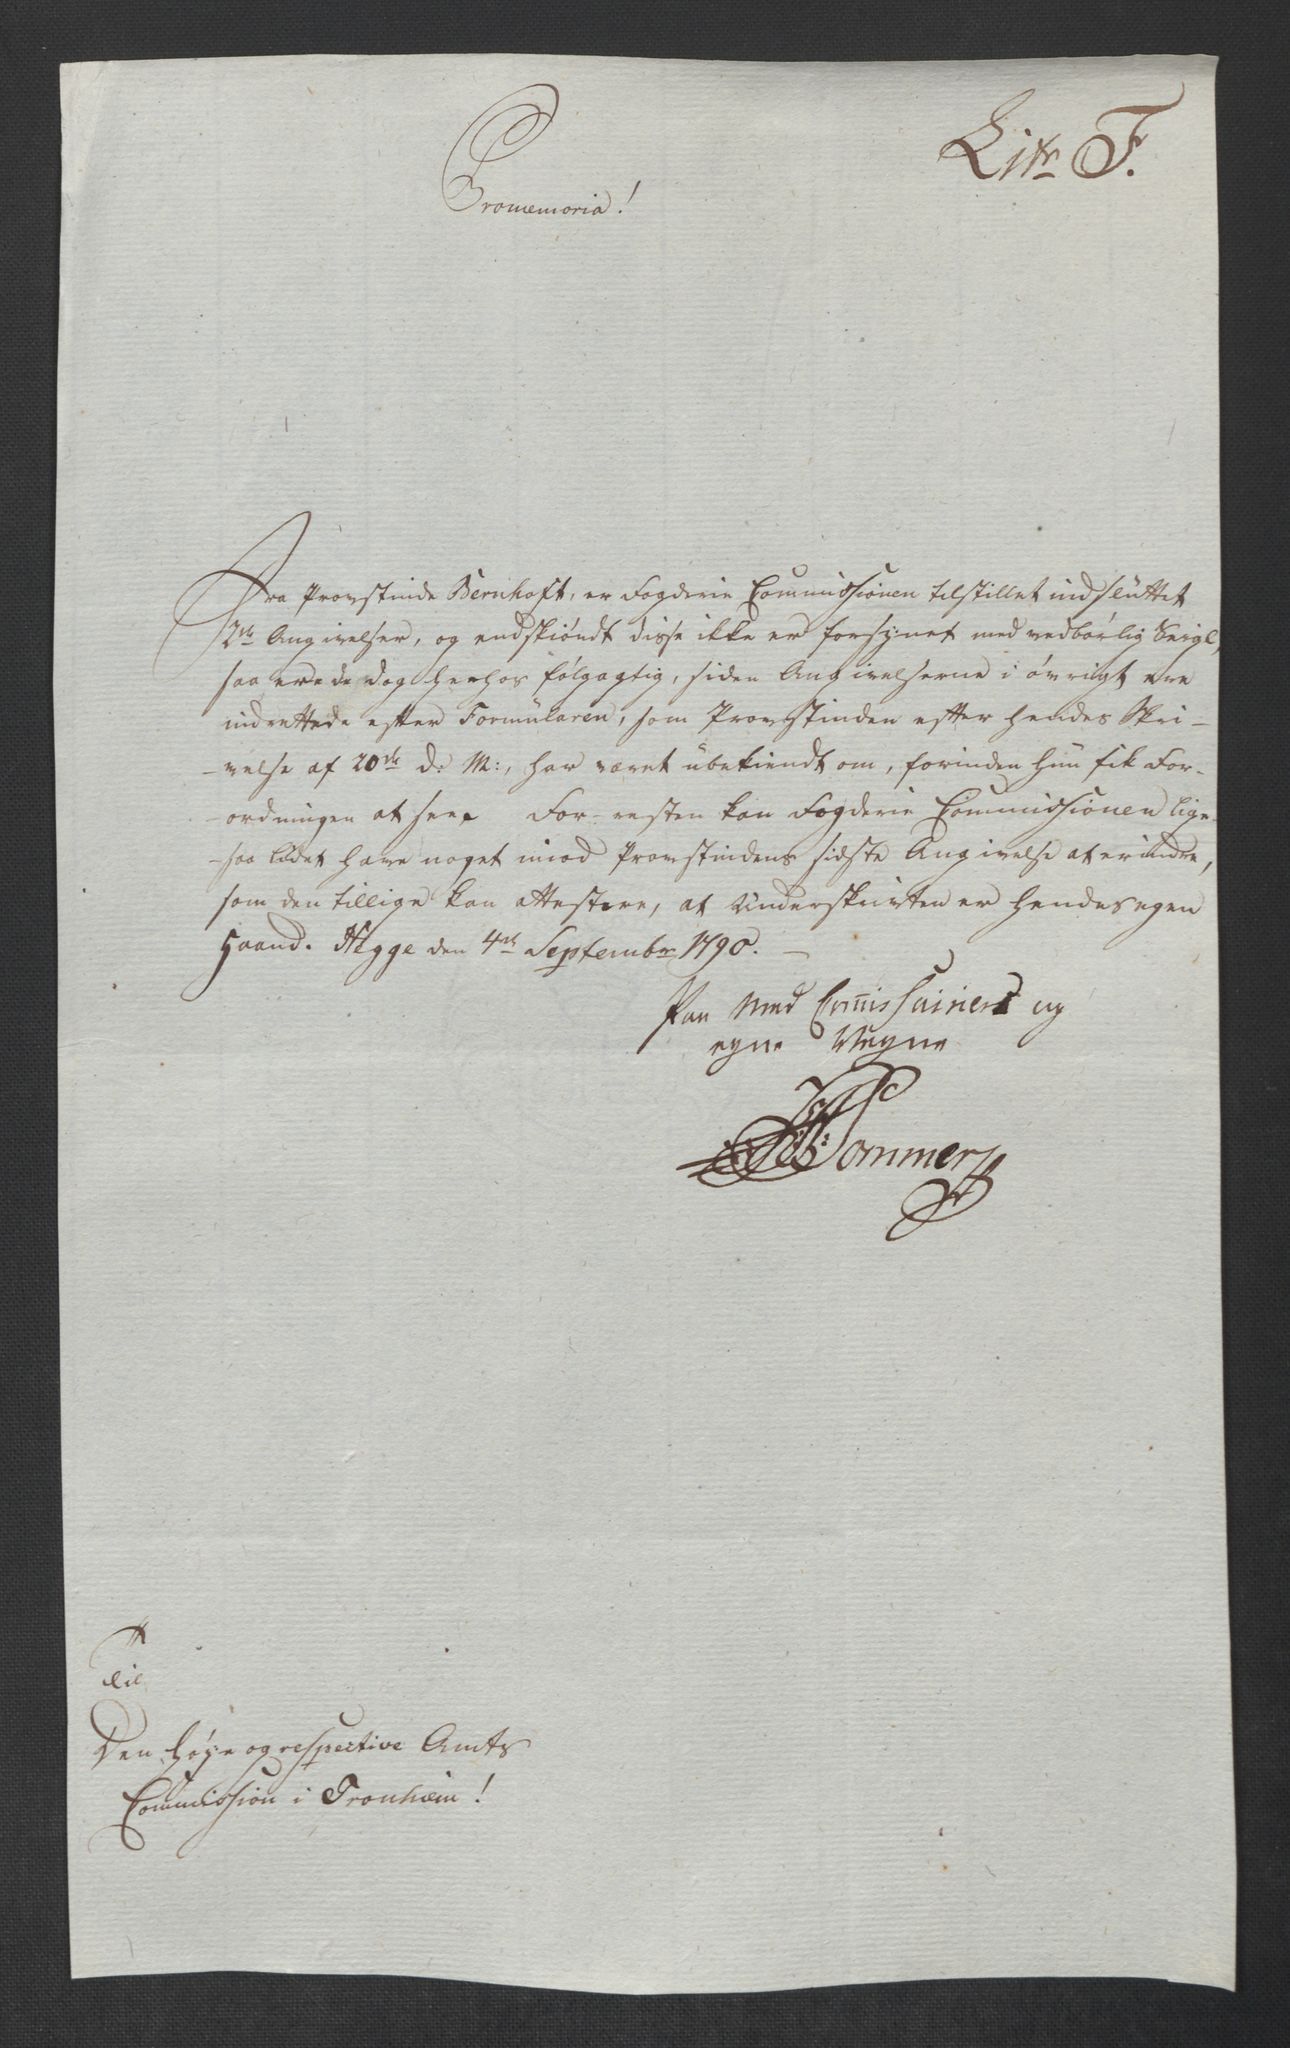 Litr F.
Promemoria!
Fra Provstinde Bernhoft, er Fogderie Commissionen tilstillet indsluttet
2de Angivelser, og endskiøndt disse ikke er forsynet med vedbørlig Seigl,
saa ere de dog herhos følgagtig, siden Angivelserne i øvrigt ere
indrettede efter Formularen, som Provstinden efter hendes Skri-
-velse af 20de d: M:, har været ubekiendt om, forinden hun fik For-
-ordningen at see. For-resten kan Fogderie Commissionen lige-
-saa lidet have noget imod Provstindens sidste Angivelse at erindre,
som den tillige kan attestere, at Underskrivten er hendes egen
Haand. Hegge den 4de Septembr 1790.
Paa Med Commissairiers og
egne Vegne
Sommer
Til
Den høye og respective Amts
Commission i Tronhiem!